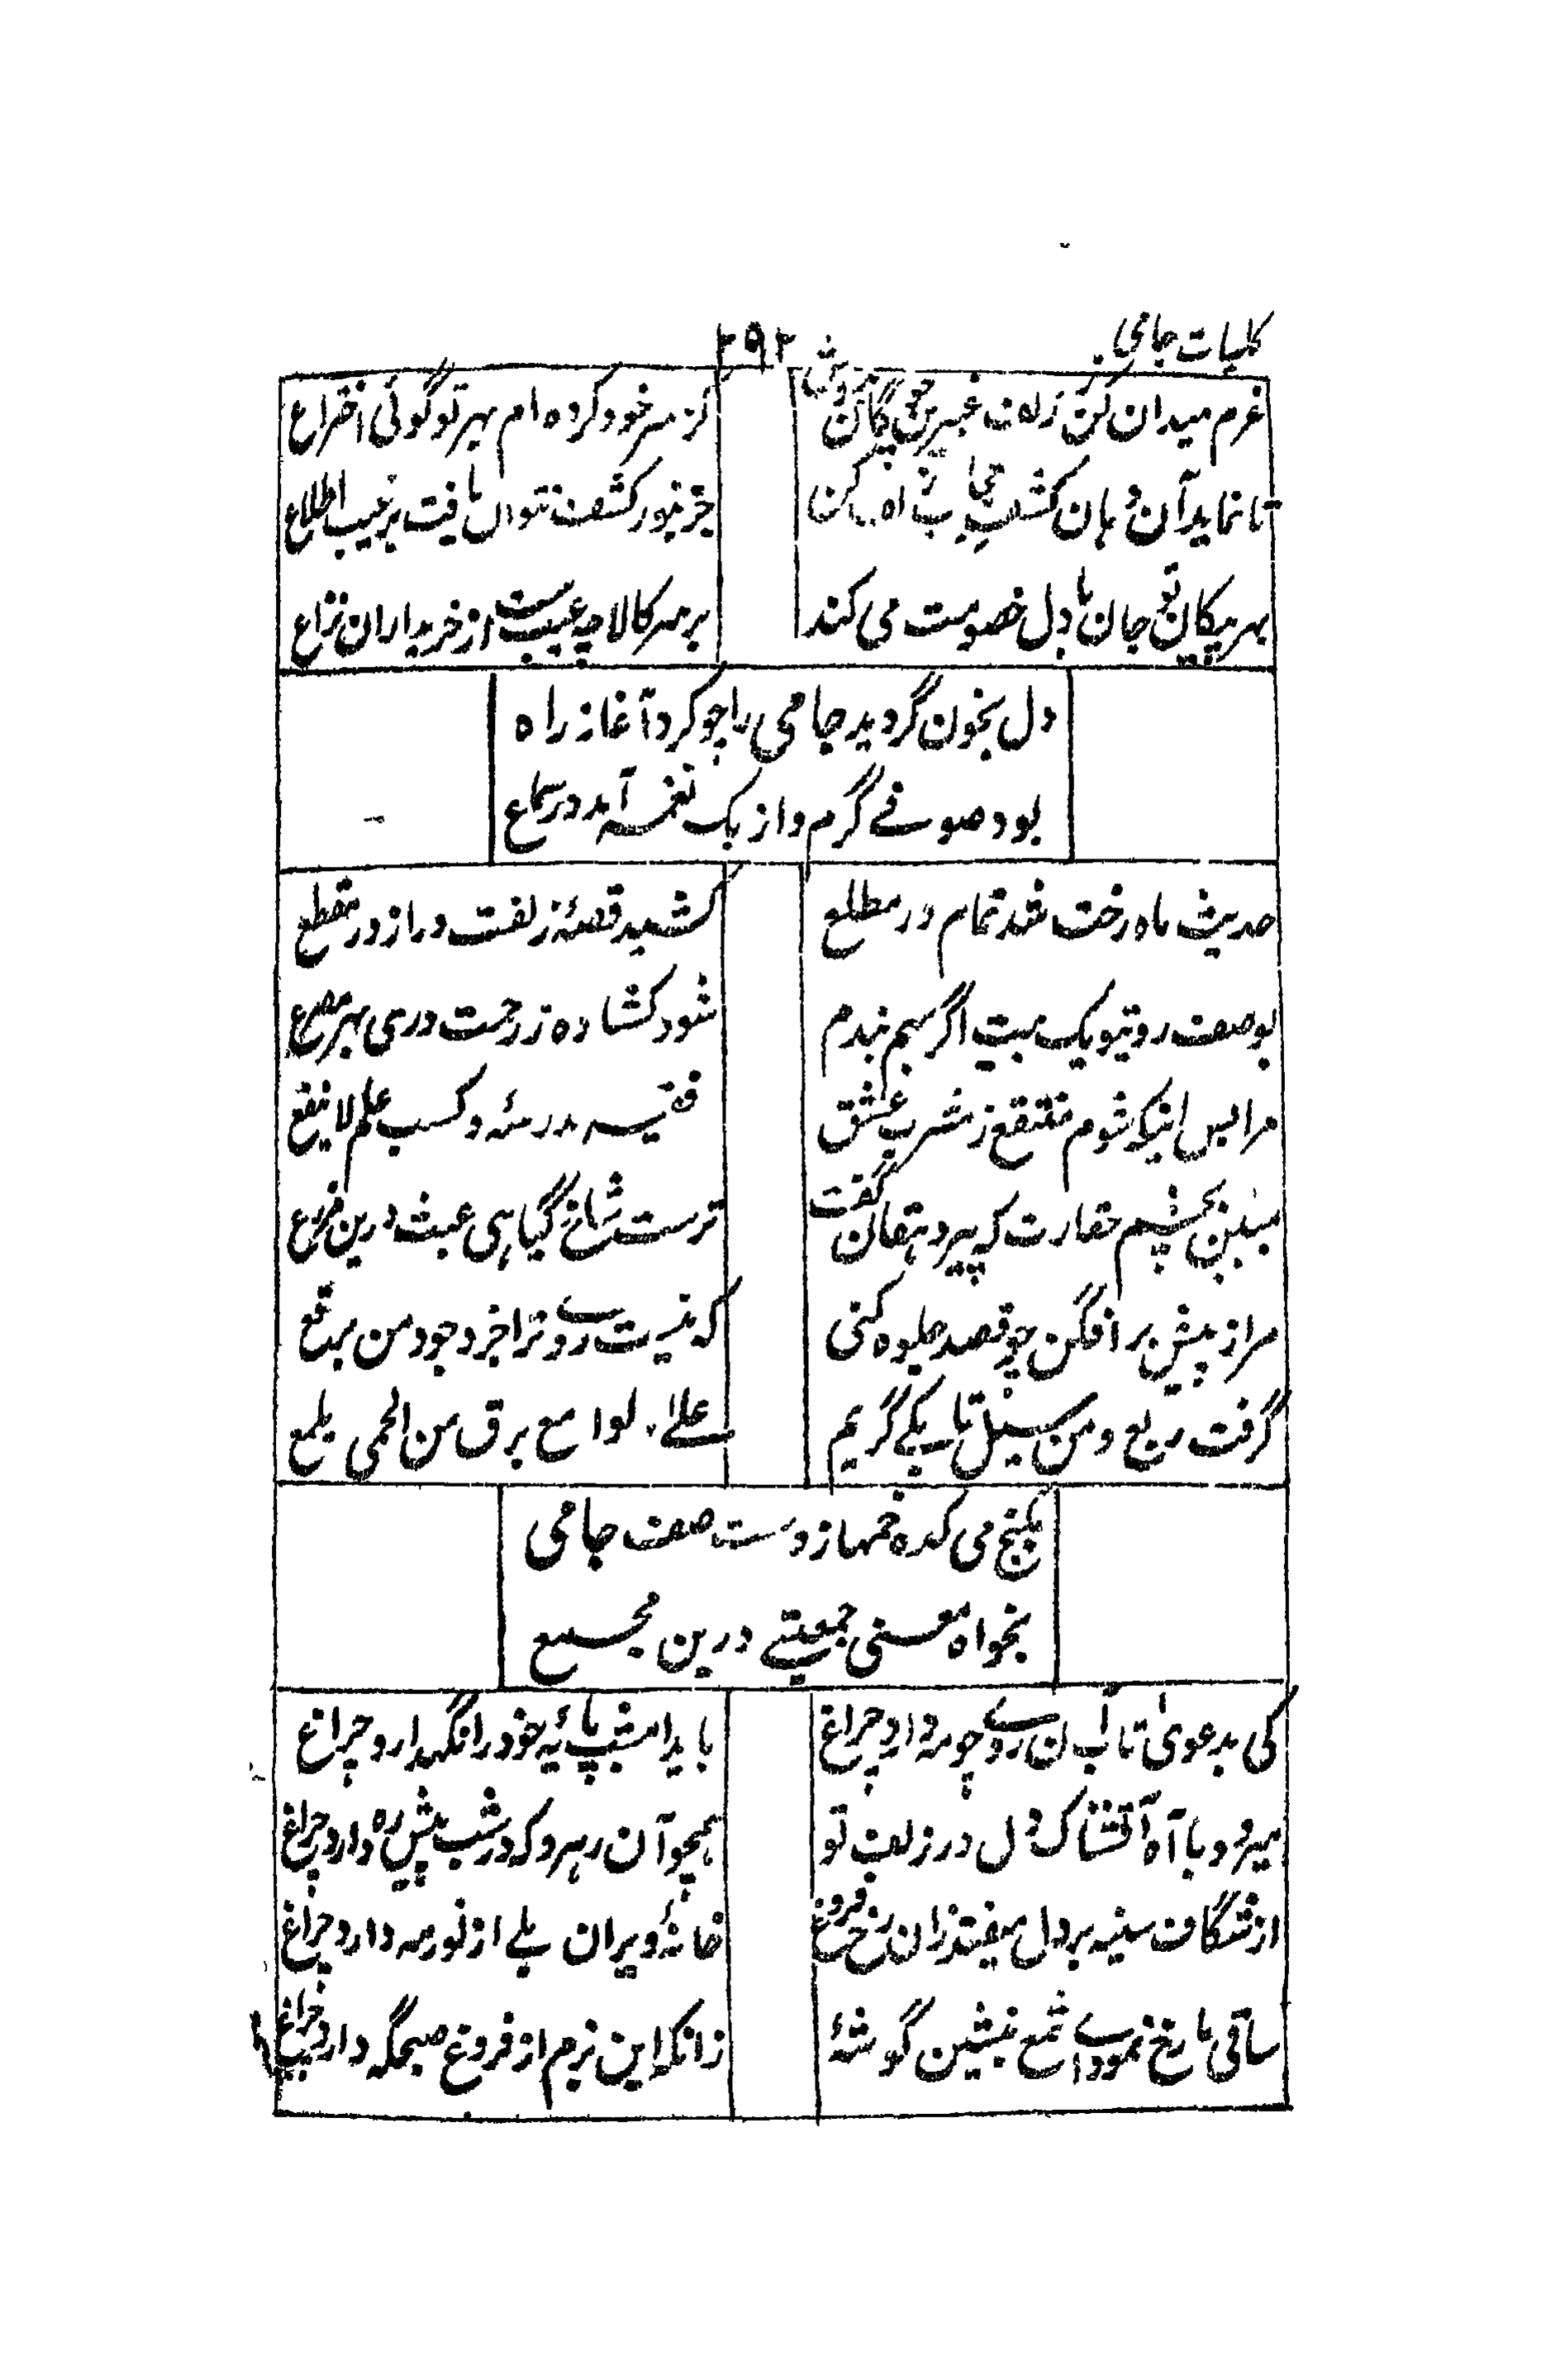 کلیات جامی
۲۹۲
عزم میدان کن ز زلف عنبرین چوگان بدوش
کز سر خود کرده ام بهر تو گوئی اختراع
تا نماید آن دهان کشف حجابی زان دهن کن
جز بنور کشف نتوان یافت بر غیب اطلاع
بهر پیکان تو جان با دل خصومت می کند
بر سر کالا چه عیبست از خریداران نزاع
دل بخون گردید جامی را چو کرد آغاز راه
بود صوفے گرم و از یک نغمه آمد در سماع
حدیث ماه رخت شد تمام در مطلع
کشید قصهٔ زلفت دراز در مقطع
بوصف روی تو یک بیت اگر بهم بندم
شود کشاده ز رحمت دری بهر مصرع
مرا بس اینکه شوم منتفع ز مشرب عشق
فقیه مدرسه و کسب علم لا ینفع
مبین بچشم حقارت که پیر دهقان گفت
نرست شاخ گیاهی عبث درین مزرع
مرا ز پیش بر افگن چو قصد جلوه کنی
که نیست روے ترا جز وجود من برقع
گرفت ربع و من سیل تا بکے گریم
علےٰ لوامع برق من الحمی یلمع
بکنج می کده خمها ز دست صف جامی
بخواه معنی جمعیتے درین مجمع
کی بدعویٰ تاب آن روے چو مه دارد چراغ
باید امشب پائه خود را نگهدارد چراغ
میرود با آه آتشناک دل در زلف تو
همچو آن رهرو که در شب پیش ره دارد چراغ
از شگاف سینه بر دل میفتد زان رخ فروغ
خانهٔ ویران بلے از نور مه دارد چراغ
ساقی ما رخ نمود اے شمع بنشین گوشهٔ
زانکه این بزم از فروغ صبحگه دارد چراغ